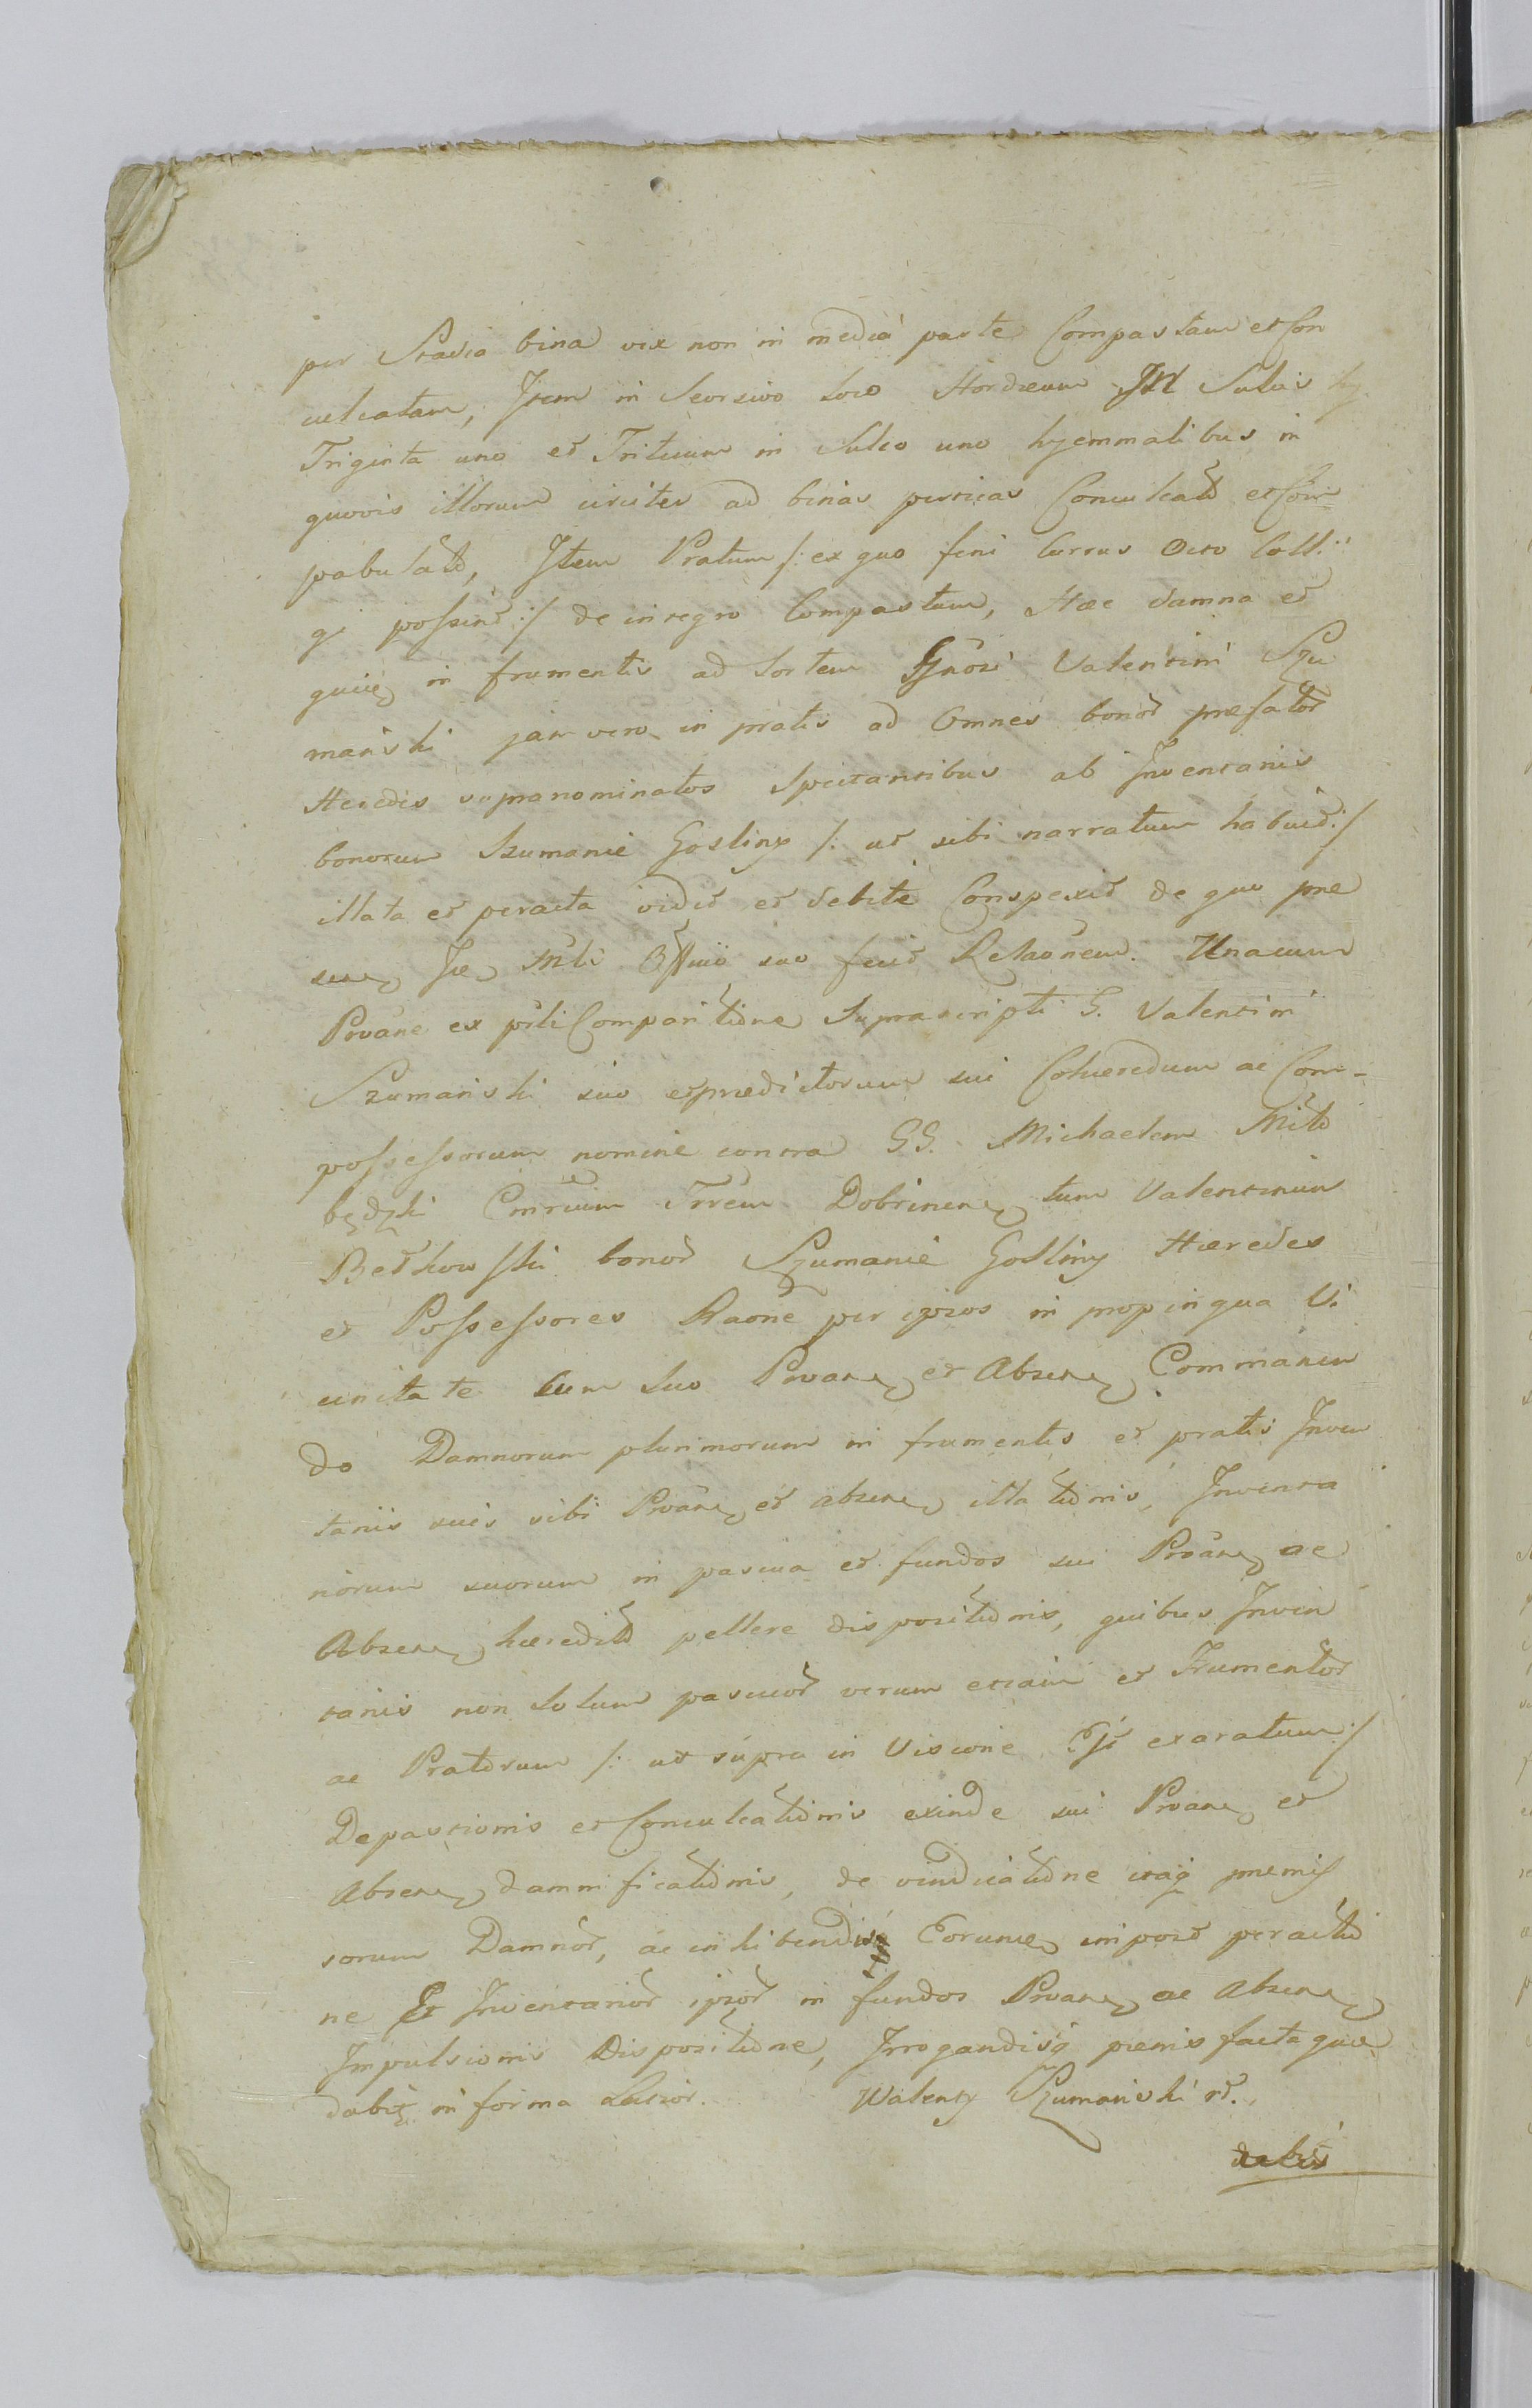 per Stadia bina vix non in mediâ parte Compastam et Con
culcatam, Item in Seorsivo loco Hordeum In Sulcis hy
Triginta uno et Triticum in Sulco uno hyemmalibus in
quovis illorum circiter ad binas perticas Conculcatt et Com=
pabulatt, Item Pratum /: ex quo feni Currus Octo Colli
gi possint :/ de integro Compastum, Haec damna et
in frumentis ad Sortem Gnosi Valentini Szu
mański jam vero in pratis ad Omnes bonor praefator
Heredes supranominatos Spectantibus ab Inventariis
bonorum Szumanie Gosliny /: ut sibi narratum habuit :/
illata et peracta vidit et debite Conspexit de quo prae
suae Jud Mli Offcio suo fecit Relaonem. Unacum
Proane ex psti Comparitione Suprascripti G. Valentini
Szumanski suo et praedictorum sui Cohaeredum ac Com-
possessorum nomine contra GG. Michaelem Nieto
będzki Cmrcium Trrem Dobrinen, tum Valentinum
Betkowski bonor Szumanie Gosliny Haeredes
et Possessores Raone per ipsos in propinqua Vi
cinitate Cum Suo Proane et Absene Commanen
do Damnorum plurimorum in frumentis et pratis Inven
tariis suis sibi Proane et absene illationis, Inventa
riorum suorum in pascua et fundos sui Proane ac
Absene haeredit pellere dispositionis, quibus Inven
tariis non Solum pascuor verum etiam et Frumentor
ac Pratorum /: ut supra in Visione Est exaratum :/
Depastionis et Conculcationis exinde sui Proane et
Absene damnificationis, de vindicatione itaq praemis
sorum Damnor, ac inhibendis Eorum impost peractio
ne Et Inventarior ipsor in fundos Proane ac Absene
Impulsionis Dispositione, Irrogandisq paenis facta quae
dabit in forma Lacior. Walenty Szumański rt.